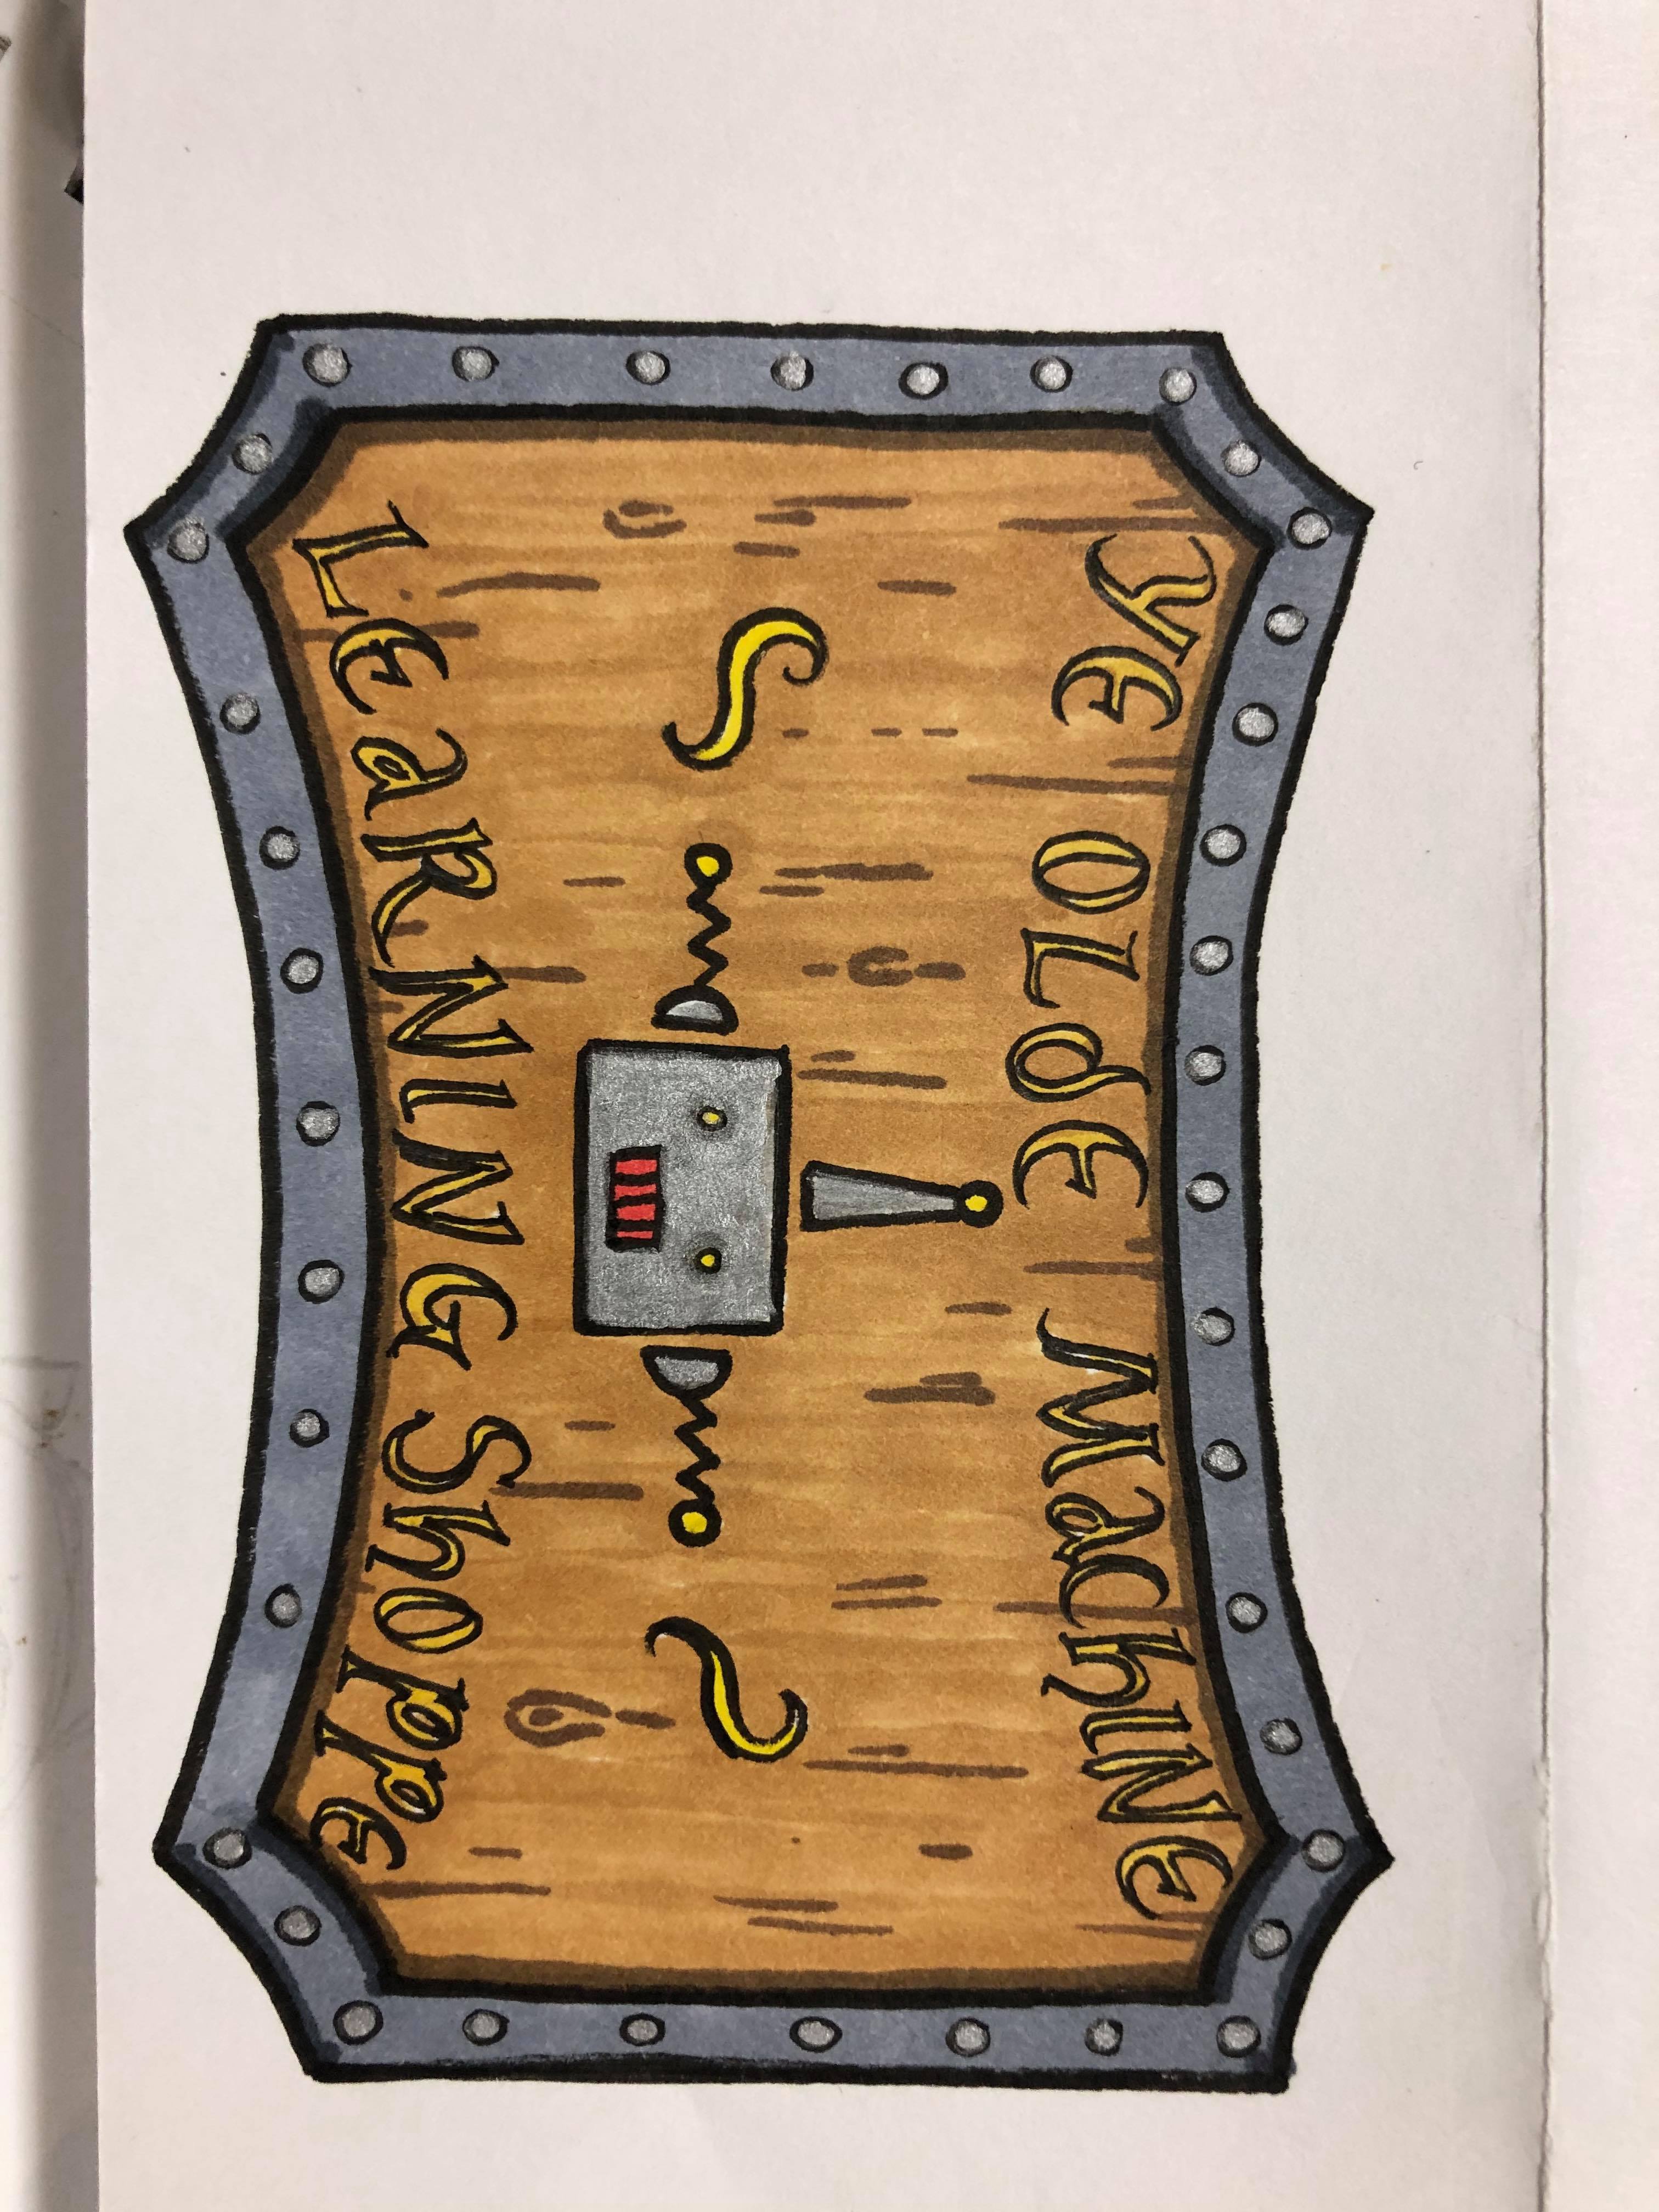 Ye Olde Machine
Learning Shoppe